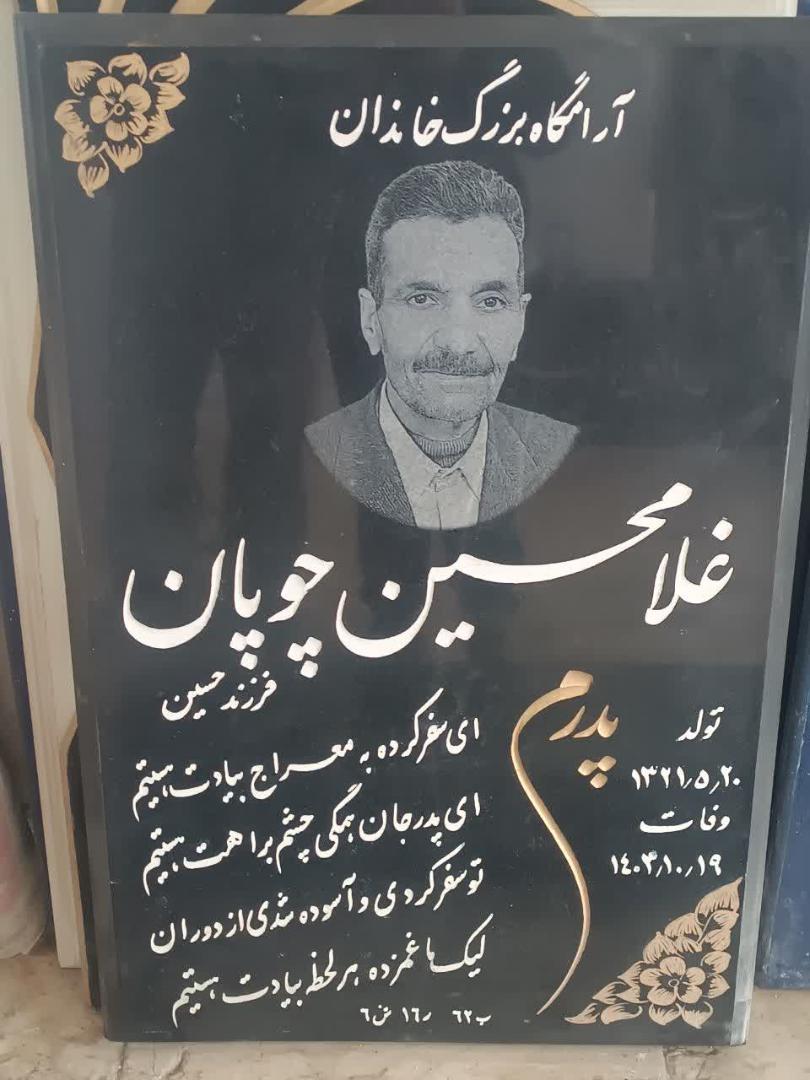 آرامگاه بزرگ خاندان
غلامحسین چوپان
فرزند حسین
پدرم
تولد
۱۳۲۱٫۵٫۲۰
وفات
۱۴۰۳٫۱۰٫۱۹
ای سفر کرده به معراج بیادت هستیم
ای پدر جان همگی چشم براهت هستیم
تو سفر کردی و آسوده شدی از دوران
لیک ما غمزده هر لحظه بیادت هستیم
ب۶۲ ر۱۶ ش۶